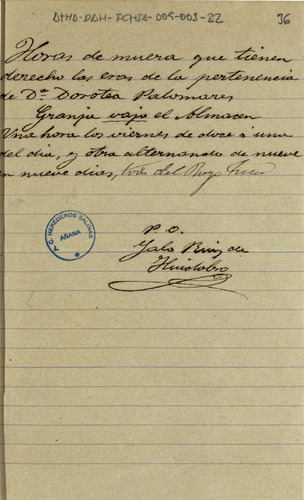 ATHA-DAH-FCHSA-009-003-22
36
Horas de muera que tienen
derecho las eras de la pertenencia
de Dª Dorotea Palomares
Granja vajo el Almacen
Una hora los viernes de doce a una
del dia, y otra alternando de nueve
en nueve dias, del Rey
P. O.
Ruiz de
Huidobro
A.G. HEREDEROS SALINAS
AÑANA